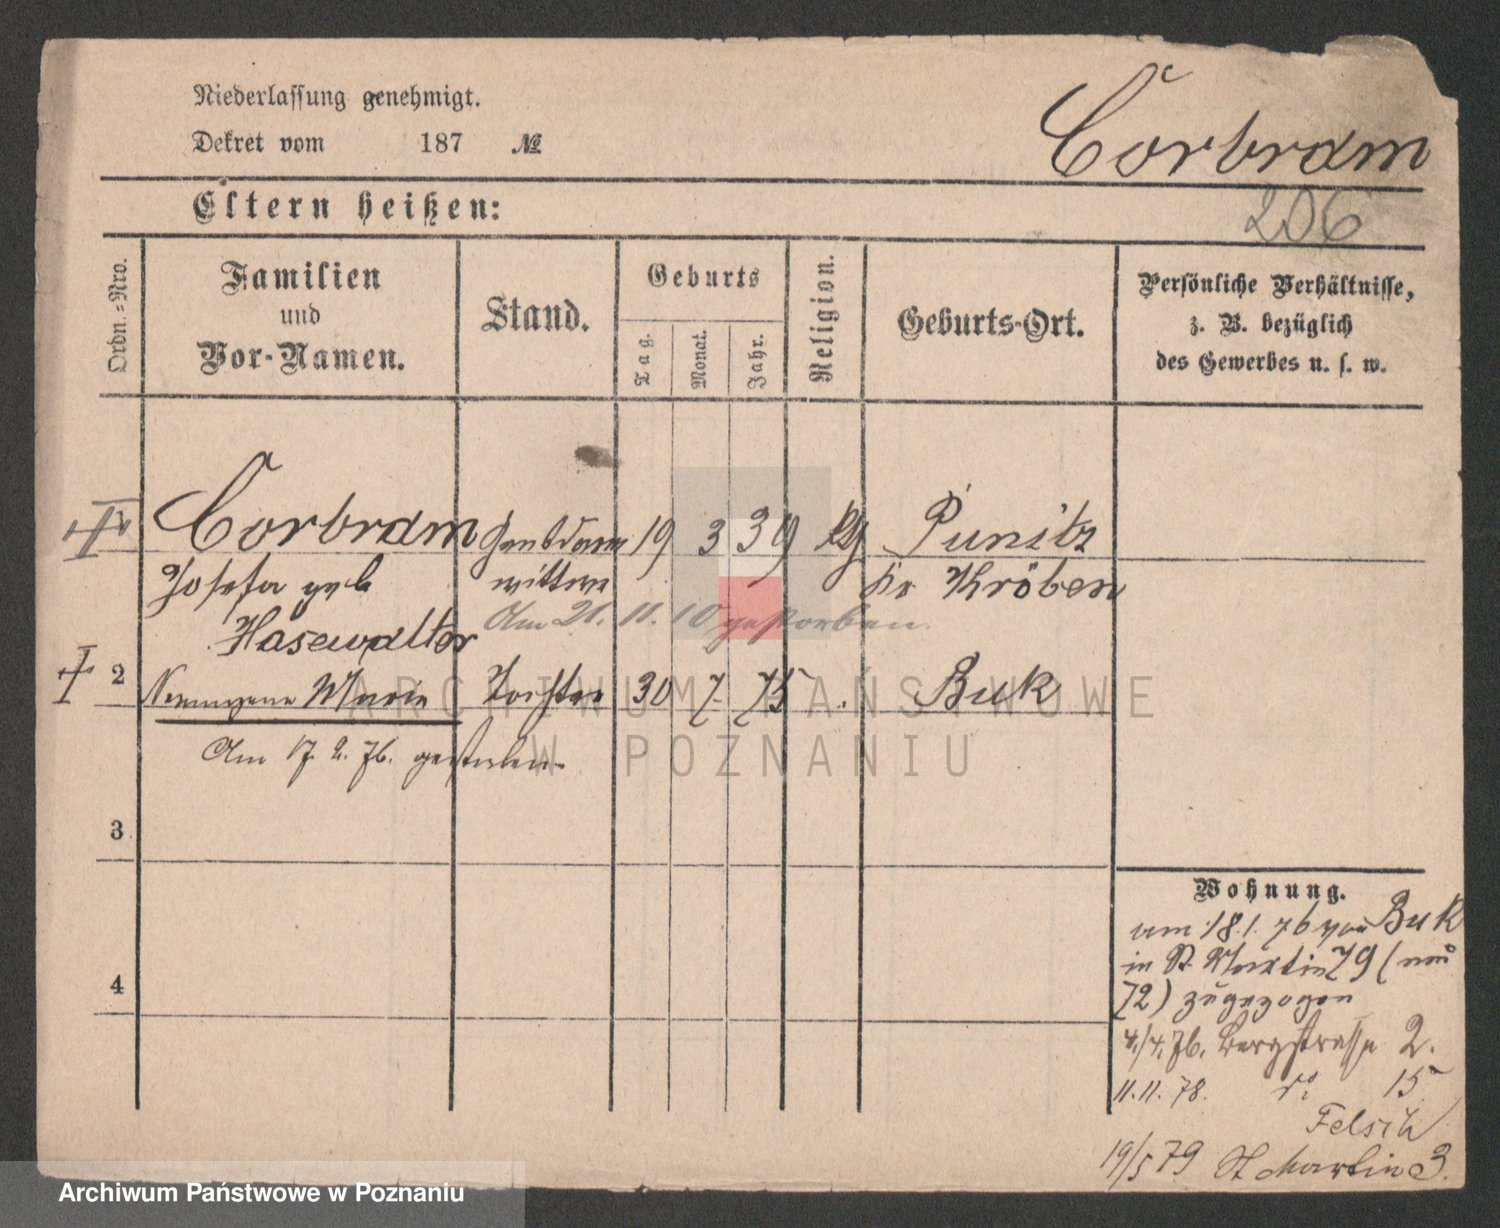 Niederlassung genehmigt.
Dekret vom 187 №
Corbram
206
Eltern heißen:
Ordn.-Nro.
Familien
und
Vor-Namen.
Stand.
Geburts
Tag.
Monat.
Jahr.
Religion.
Geburts-Ort.
Persönliche Verhältnisse,
z. B. bezüglich
des Gewerbes u. s. w.
Corbram 19 3 39 Punitz
Josefa geb wittwe Kr Kröben
Hasewalter Am 21. 11. 10 gestorben.
2 Marie Tochter 30 7 75 Buk
Am 17. 2. 76. gestorben
3
4
Wohnung.
am 18.1.76 von Buk
in St. Martin 79 (neu
72) zugezogen
4./4. 76. Bergstrasse 2.
11.11.78. do 15
19/5 79 St Martin 3.
ARCHIWUM PAŃSTWOWE
W POZNANIU
Archiwum Państwowe w Poznaniu